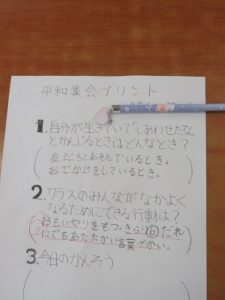 平和集会プリント
1.自分が生きていて「しあわせだな」
とかんじるときはどんなとき？
友だちとあそんでいるとき。
おでかけをしているとき。
2.クラスのみんながなかよく
なるためにできる行動は？
おもいやりをもつ。きらり⑥だれ
にでもあたたかい言葉づかい。
3.今日のかんそう